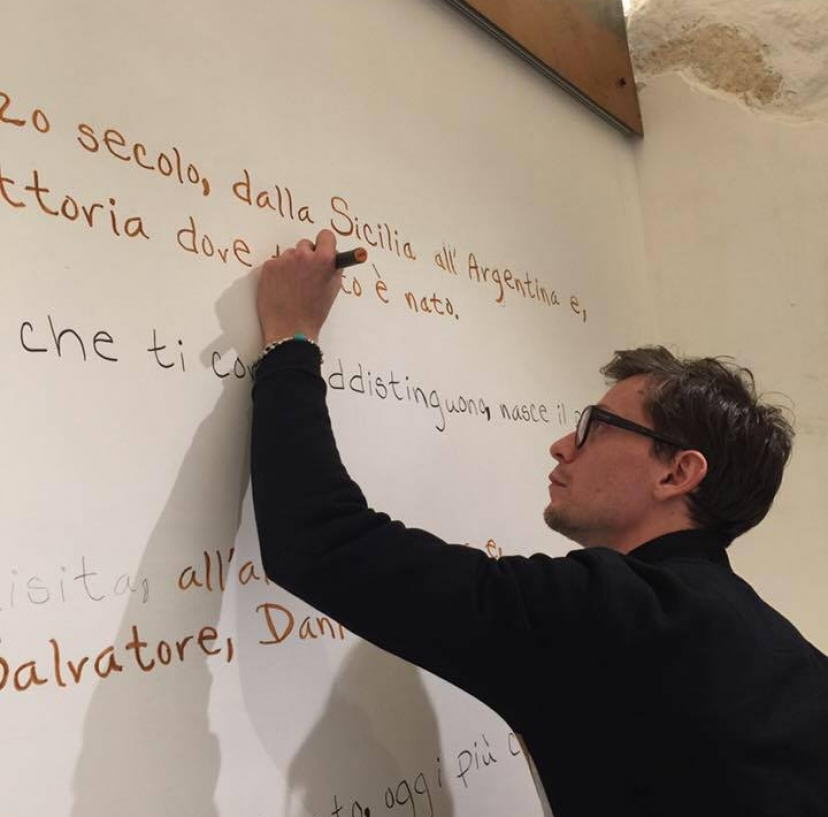 20 secolo, dalla Sicilia all'Argentina e,
ttoria dove to è nato.
che ti co ddistinguono, nasce il
isita, all'a
Salvatore, Dani
to, oggi più c